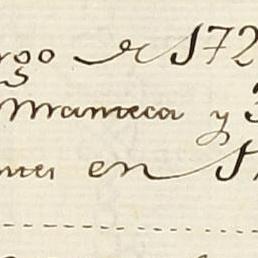 rgo de 172
Manteca y 3
ntes en 1